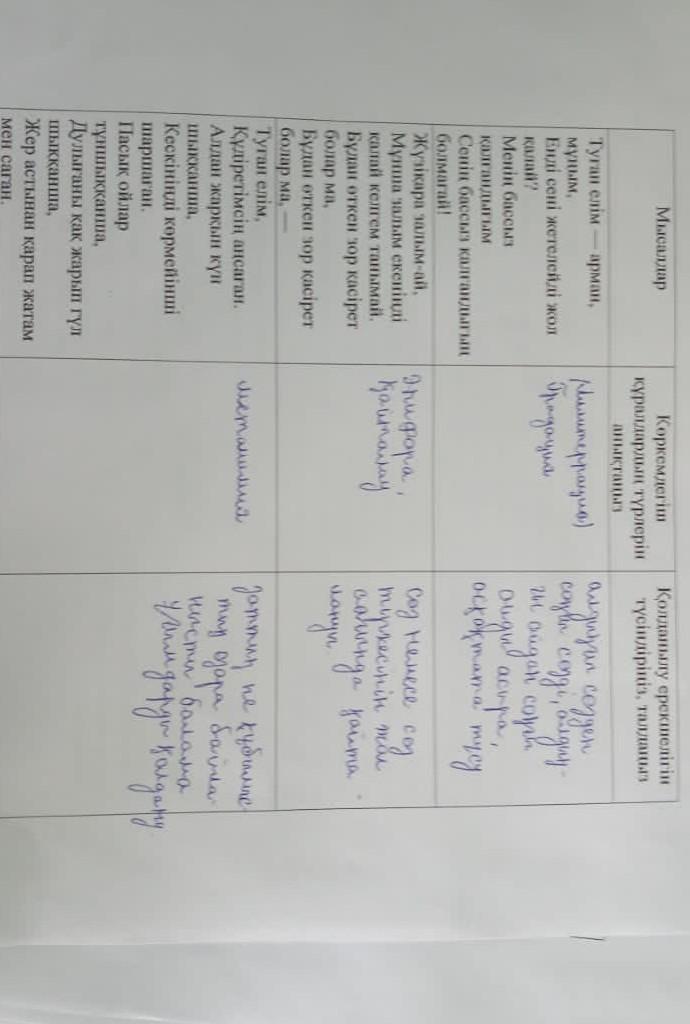 Мысалдар
Көркемдегіш
құралдардың түрлерін
анықтаңыз
Қолданылу ерекшелігін
түсіндіріңіз, талдаңыз
Туған елім — арман,
мұным,
Енді сені жетелейді жол
қалай?
Менің бассыз
қалғандығым
Сенің бассыз қалғандығың
болмағай!
(Аллитеррация)
Градация
алдыңғы сөзден
соңғы сөзді, алдың-
ғы ойдан соңғы
ойды асыра,
асқақтата түсу
Жүзіқара залым-ай,
Мұнша залым екеніңді
қалай келгем танымай.
Бұдан өткен зор қасірет
болар ма,
Бұдан өткен зор қасірет
болар ма, —
Эпифора,
қайталау
Сөз немесе сөз
тіркесінің жол
соңында қайта
лануы
Туған елім,
Құдіретімсің аңсаған.
Алдан жарқын күн
шыққанша,
Кескініңді көрмейінші
шаршаған.
Пасық ойлар
тұншыққанша,
Дулығаны қақ жарып гүл
шыққанша,
Жер астынан қарап жатам
мен саған.
метанимия
Заттың не құбылыс-
тың өзара байла-
нысты балама
ұғымдарды қолдану